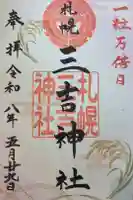 一粒万倍日
札幌
三吉神社
奉拝 令和八年五月廿九日
札幌
三吉
神社